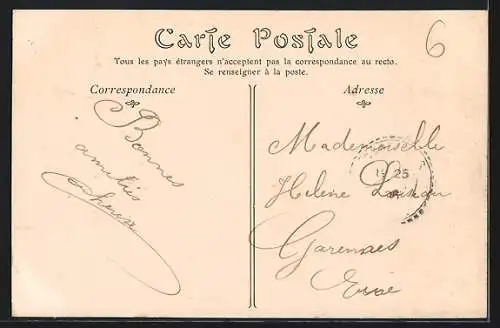 Carte Postale
Tous les pays étrangers n'acceptent pas la correspondance au recto.
Se renseigner à la poste.
6
Correspondance
Bonnes
amitiés
Adresse
Mademoiselle
Helene
Garennes
Eure
25